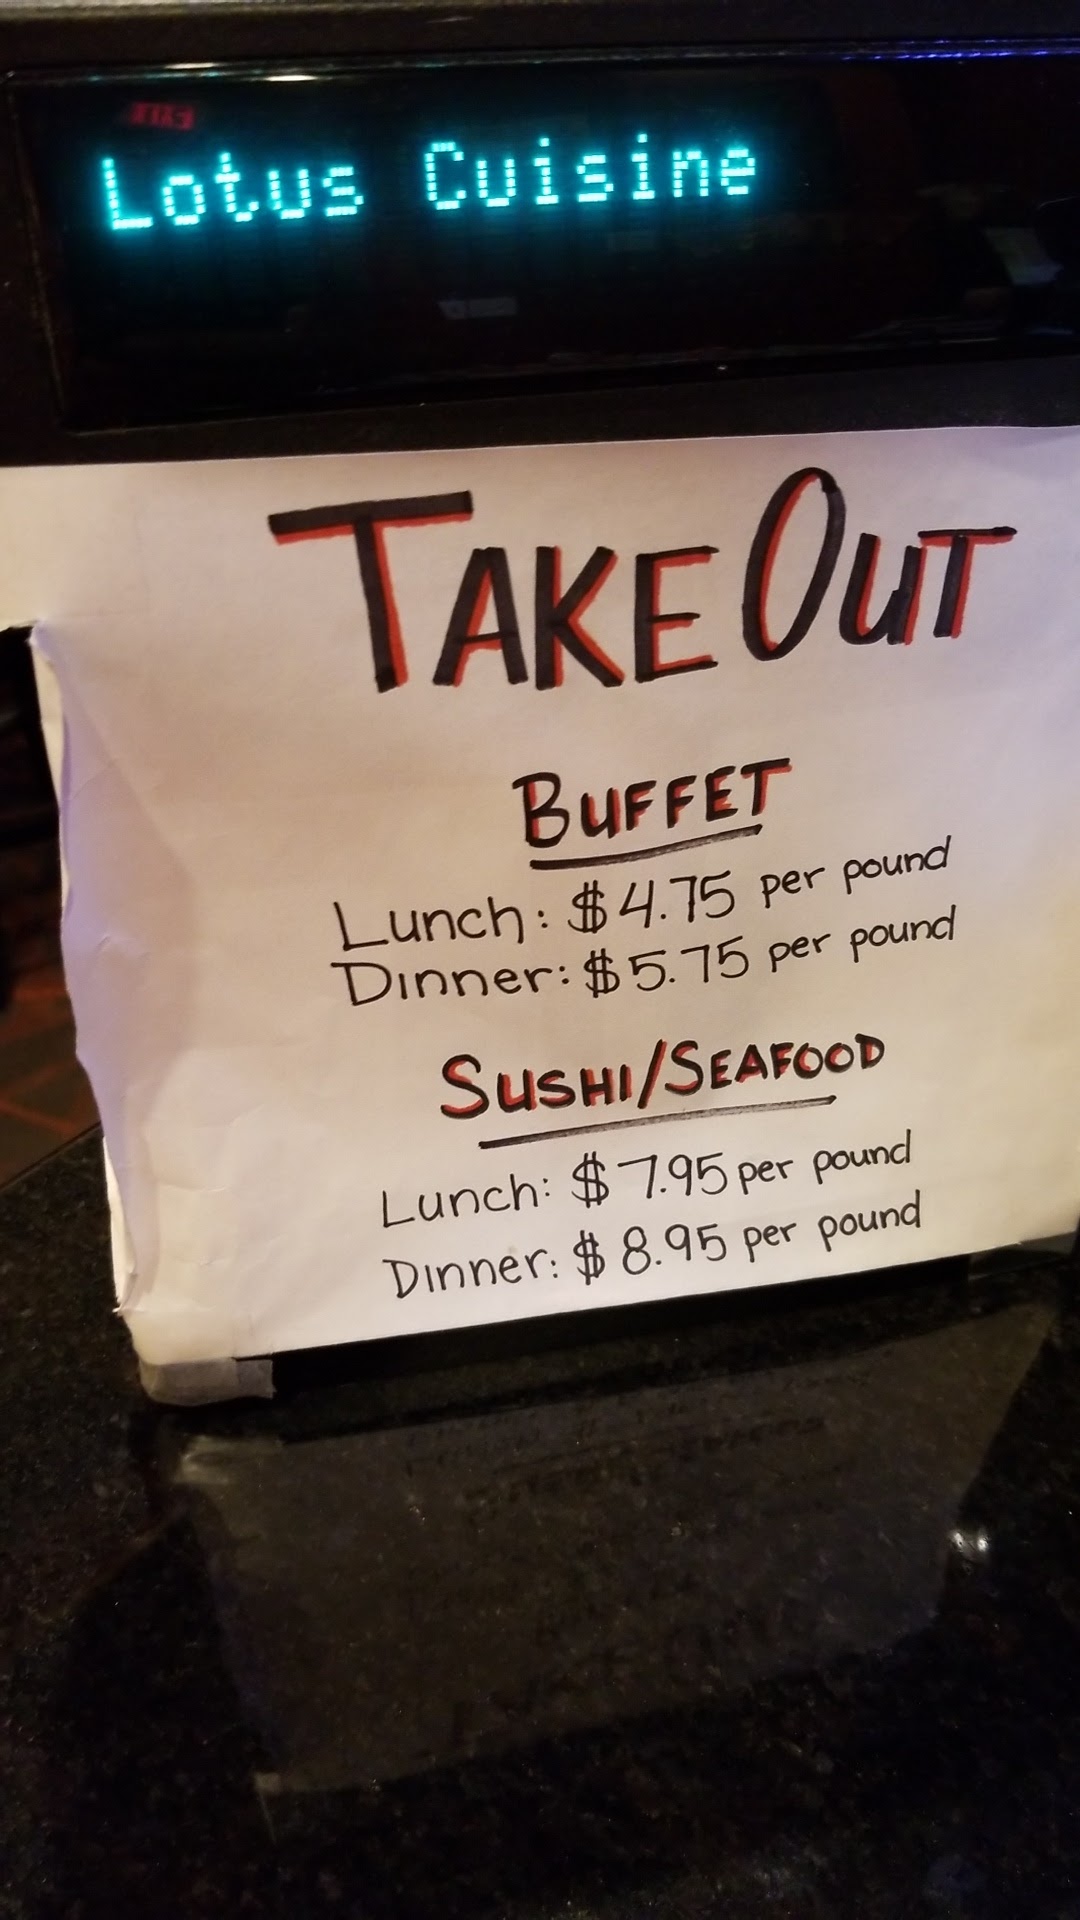 Lotus Cuisine
TAKE OUT
BUFFET
Lunch: $4.75 per pound
Dinner: $5.75 per pound
SUSHI/SEAFOOD
Lunch: $7.95 per pound
Dinner: $8.95 per pound